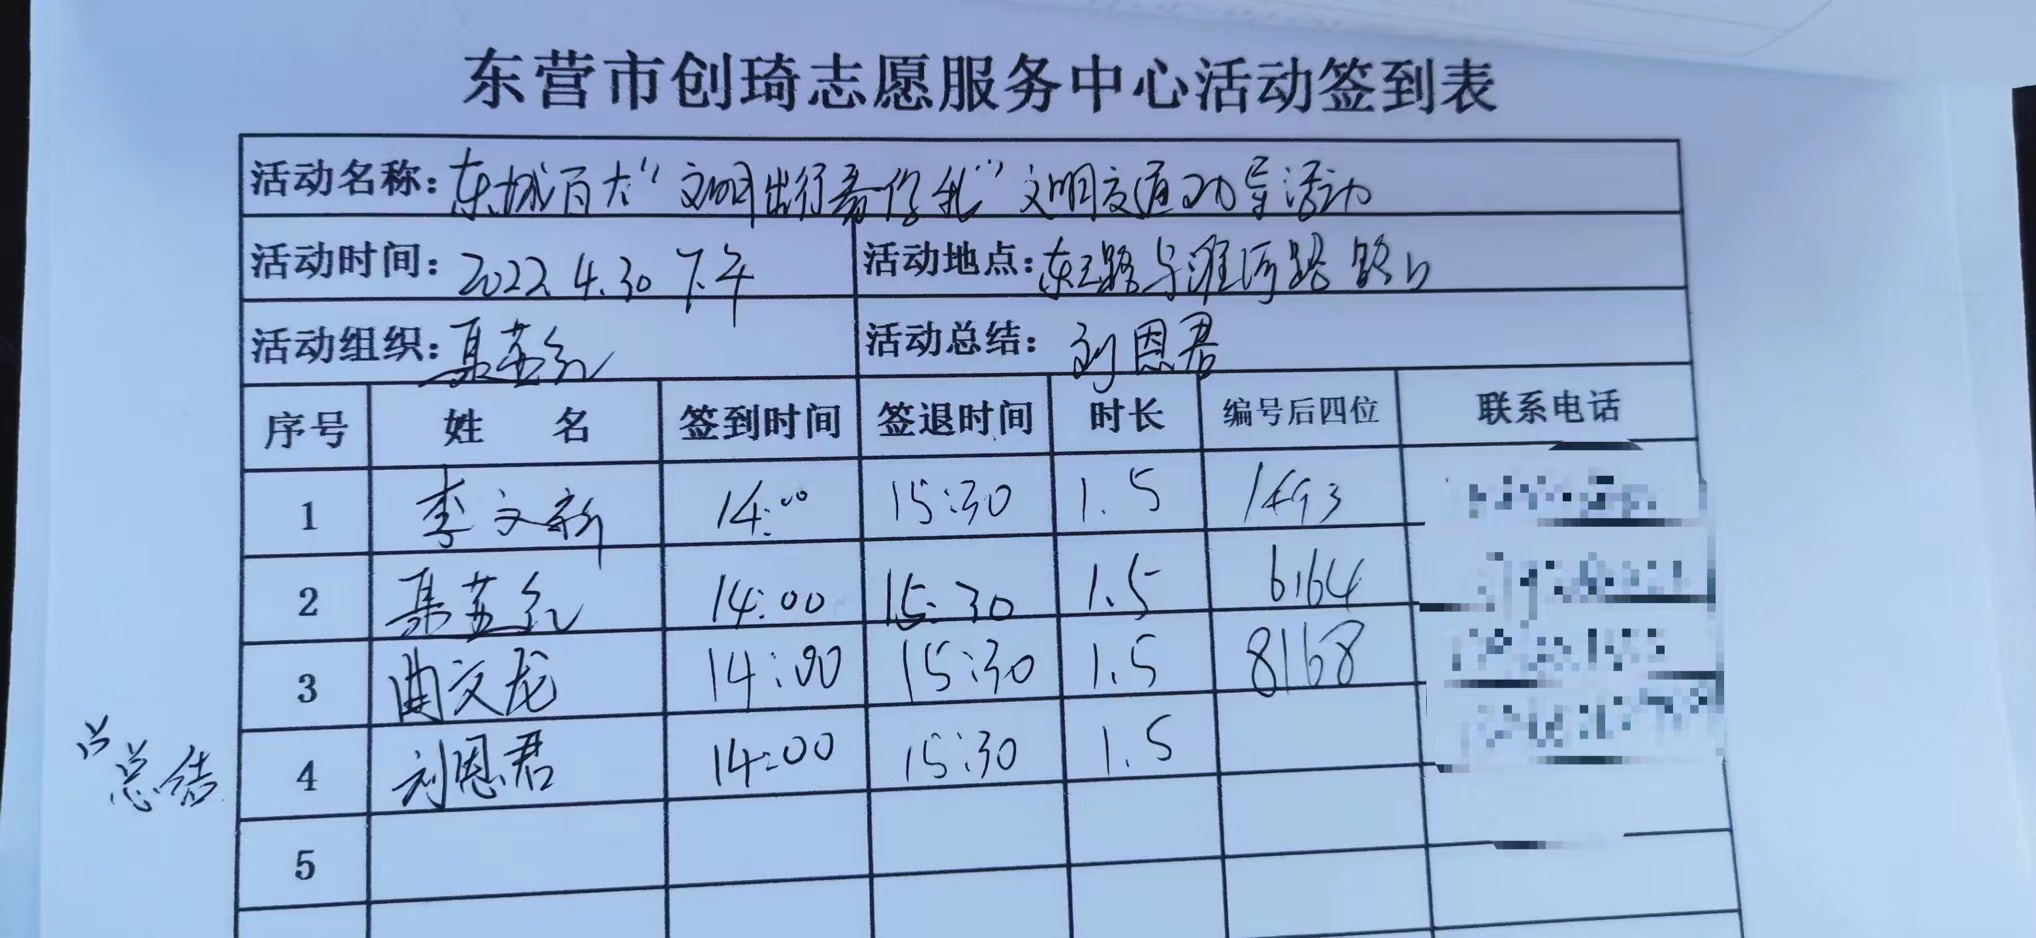 东营市创琦志愿服务中心活动签到表
活动名称：东城百大“文明出行看你我”文明交通劝导活动
活动时间：2022.4.30 下午 活动地点：东三路与淮河路路口
活动组织：聂燕红 活动总结：刘恩君
序号 姓 名 签到时间 签退时间 时长 编号后四位 联系电话
1 李文新 14:00 15:30 1.5 1493
2 聂燕红 14:00 15:30 1.5 6164
3 曲文龙 14:00 15:30 1.5 8168
总结 4 刘恩君 14:00 15:30 1.5
5